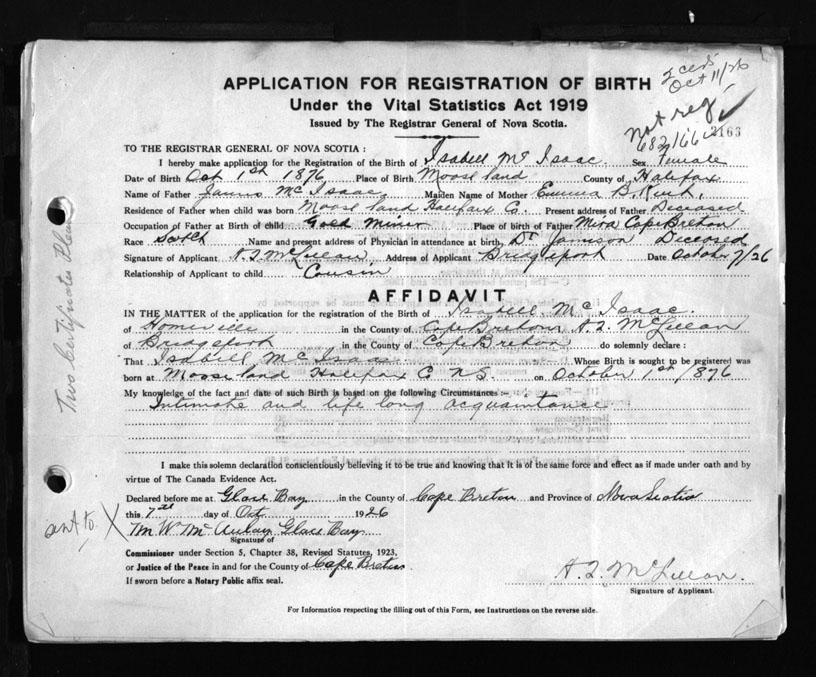 APPLICATION FOR REGISTRATION OF BIRTH
2 certs
Oct 11/26
Under the Vital Statistics Act 1919
Issued by The Registrar General of Nova Scotia.
not reg
682166
2163
TO THE REGISTRAR GENERAL OF NOVA SCOTIA :
I hereby make application for the Registration of the Birth of Isabell Mc Isaac. Sex Female
Date of Birth Oct 1st 1876 Place of Birth Moose land County of Halifax
Name of Father James Mc Isaac Maiden Name of Mother Emma B.
Residence of Father when child was born Moose land Halifax Co. Present address of Father Deceased
Occupation of Father at Birth of child Gold Miner Place of birth of Father Mira Cape Breton
Race Scotch Name and present address of Physician in attendance at birth, Dr Jamison Deceased
Signature of Applicant Address of Applicant Bridgeport Date October 7/26
Relationship of Applicant to child Cousin
AFFIDAVIT
IN THE MATTER of the application for the registration of the Birth of Isabell Mc Isaac.
of Homeville in the County of Cape Breton
of Bridgeport in the County of Cape Breton do solemnly declare :
That Isabell Mc Isaac Whose Birth is sought to be registered was
born at Moose land Halifax Co NS on October 1st 1876
My knowledge of the fact and date of such Birth is based on the following Circumstances :-
Intimate and life long acquaintance
I make this solemn declaration conscientiously believing it to be true and knowing that it is of the same force and effect as if made under oath and by
virtue of The Canada Evidence Act.
Declared before me at Glace Bay in the County of Cape Breton and Province of Nova Scotia
this 7th day of Oct 1926
sent to X
M W McAulay Glace Bay
Signature of
Commissioner under Section 5, Chapter 38, Revised Statutes, 1923.
or Justice of the Peace in and for the County of Cape Breton
If sworn before a Notary Public affix seal.
Signature of Applicant.
For Information respecting the filling out of this Form, see Instructions on the reverse side.
Two Certificates Please